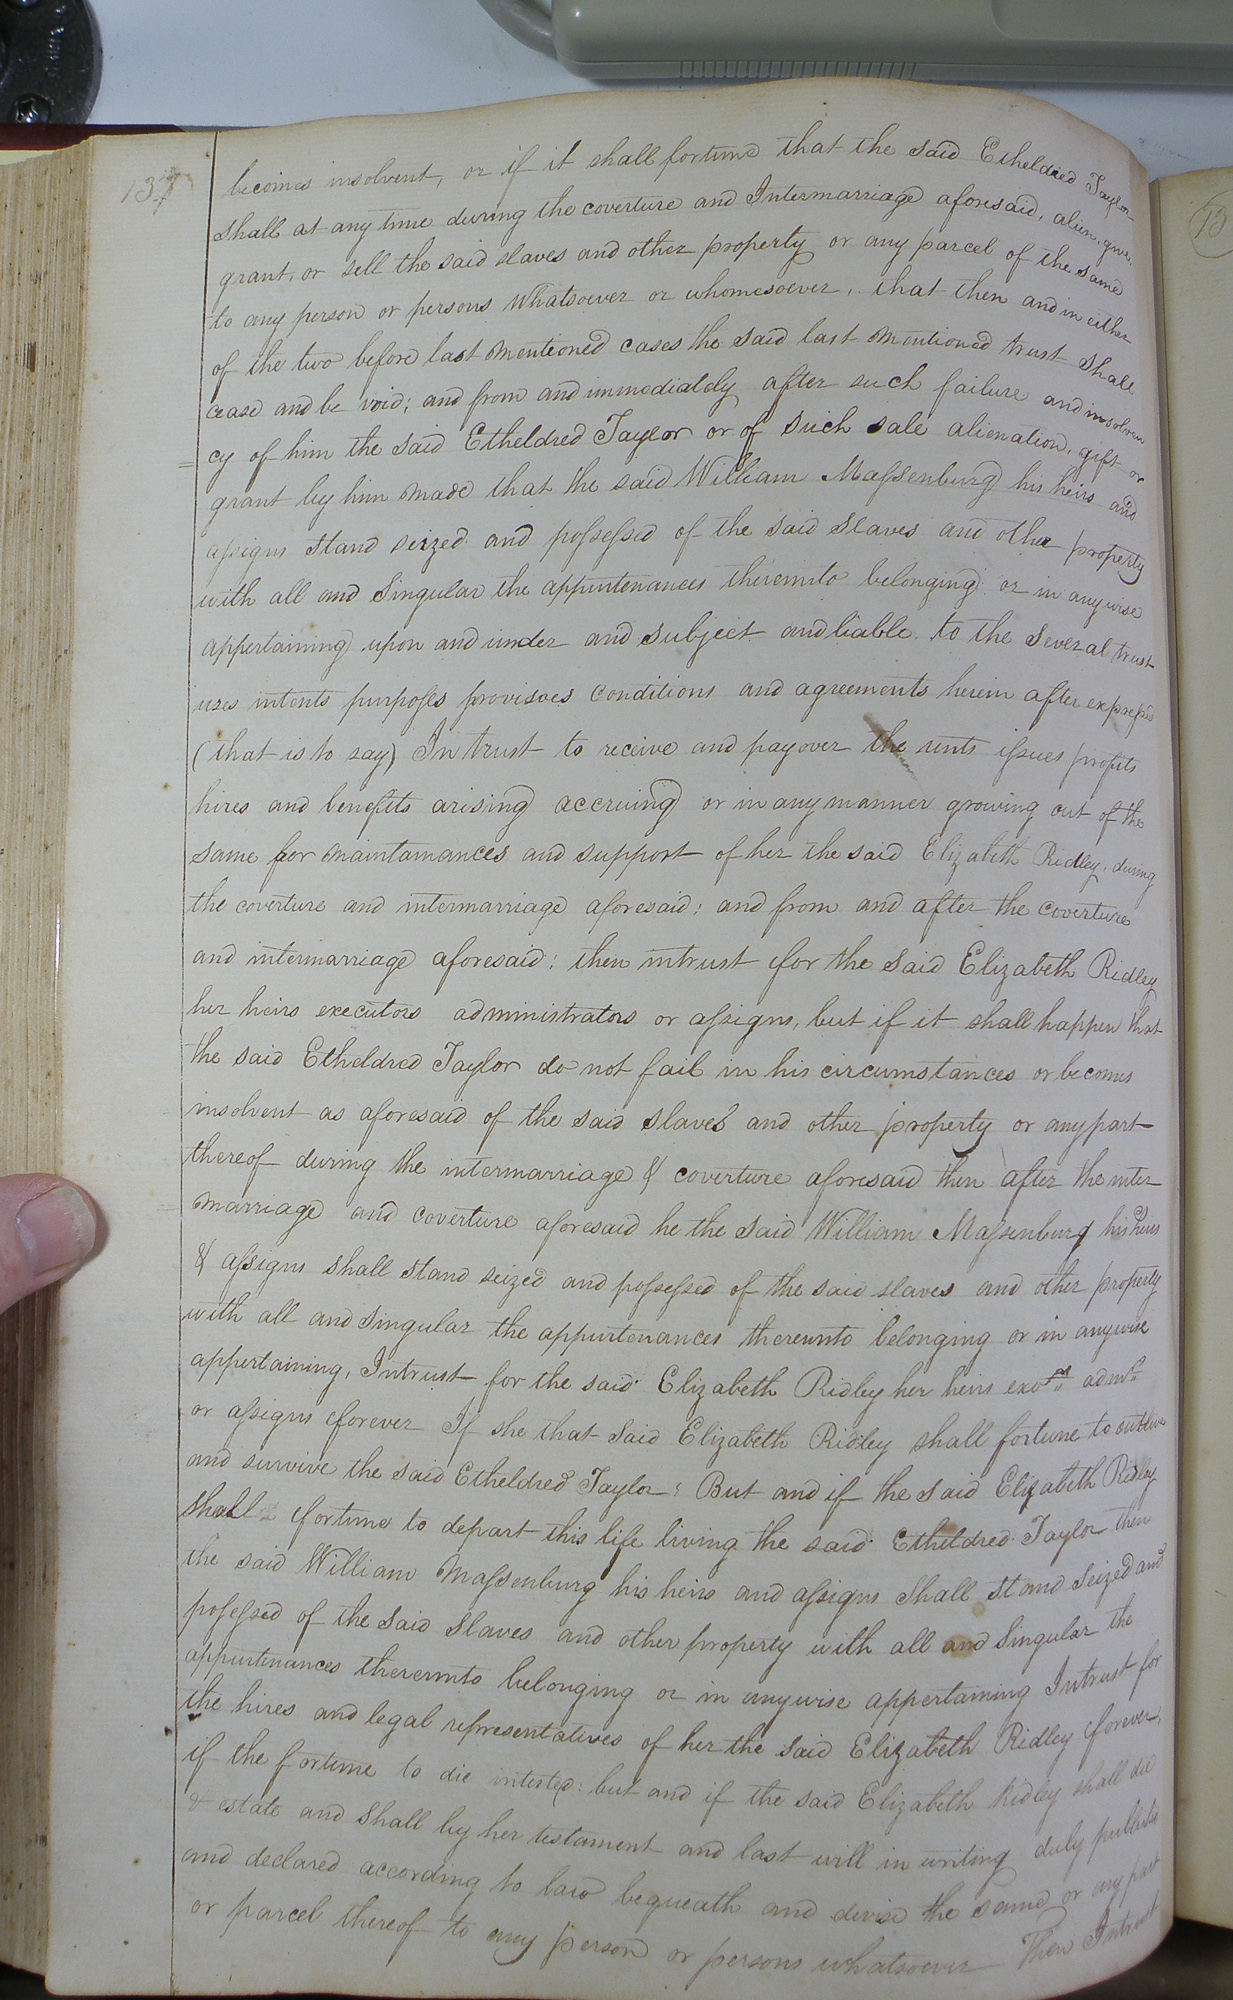 137
becomes insolvent, or if it shall fortune that the said Etheldred Taylor
shall at any time during the coverture and Intermarriage aforesaid, alien, give,
grant, or sell the said slaves and other property or any parcel of the same
to any person or persons whatsoever or whomesoever, that then and in either
of the two before last mentioned cases the said last mentioned trust shall
cease and be void; and from and immediately after such failure and insolven
cy of him the said Etheldred Taylor or of such sale alienation, gift or
grant by him made that the said William Maſsenburg his heirs and
aſsigns stand seized and poſseſsed of the said slaves and other property
with all and Singular the appurtenances thereunto belonging or in anywise
appertaining upon and under and subject and liable to the several trust
uses intents purpoſes provisoes conditions and agreements herein after expreſsed
(that is to say) In trust to receive and pay over the rents iſsues profits
hires and benefits arising accruing or in any manner growing out of the
same for maintainances and support of her the said Elizabeth Ridley, during
the coverture and intermarriage aforesaid; and from and after the coverture
and intermarriage aforesaid; then intrust for the said Elizabeth Ridley
her heirs executors administrators or aſsigns, but if it shall happen that
the said Etheldred Taylor do not fail in his circumstances or becomes
insolvent as aforesaid of the said slaves and other property or any part
thereof during the intermarriage & coverture aforesaid then after the inter
marriage and coverture aforesaid he the said William Maſsenburg his heirs
& aſsigns shall stand seized and poſseſsed of the said slaves and other property
with all and Singular the appurtenances thereunto belonging or in anywise
appertaining, Intrust for the said Elizabeth Ridley her heirs exors admrs
or aſsigns forever If she that said Elizabeth Ridley shall fortune to outlive
and survive the said Etheldred Taylor: But and if the said Elizabeth Ridley
shall fortune to depart this life living the said Etheldred Taylor then
the said William Maſsenburg his heirs and aſsigns shall stand seized and
poſeſsed of the said slaves and other property with all and Singular the
appurtenances thereunto belonging or in anywise appertaining Intrust for
the hires and legal representatives of her the said Elizabeth Ridley forever,
if the fortune to die intested: but and if the said Elizabeth Ridley shall die
& estate and shall by her testament and last will in writing duly publish
and declared according to law bequeath and devise the same or any part
or parcel thereof to any person or persons whatsoever Then Intrust